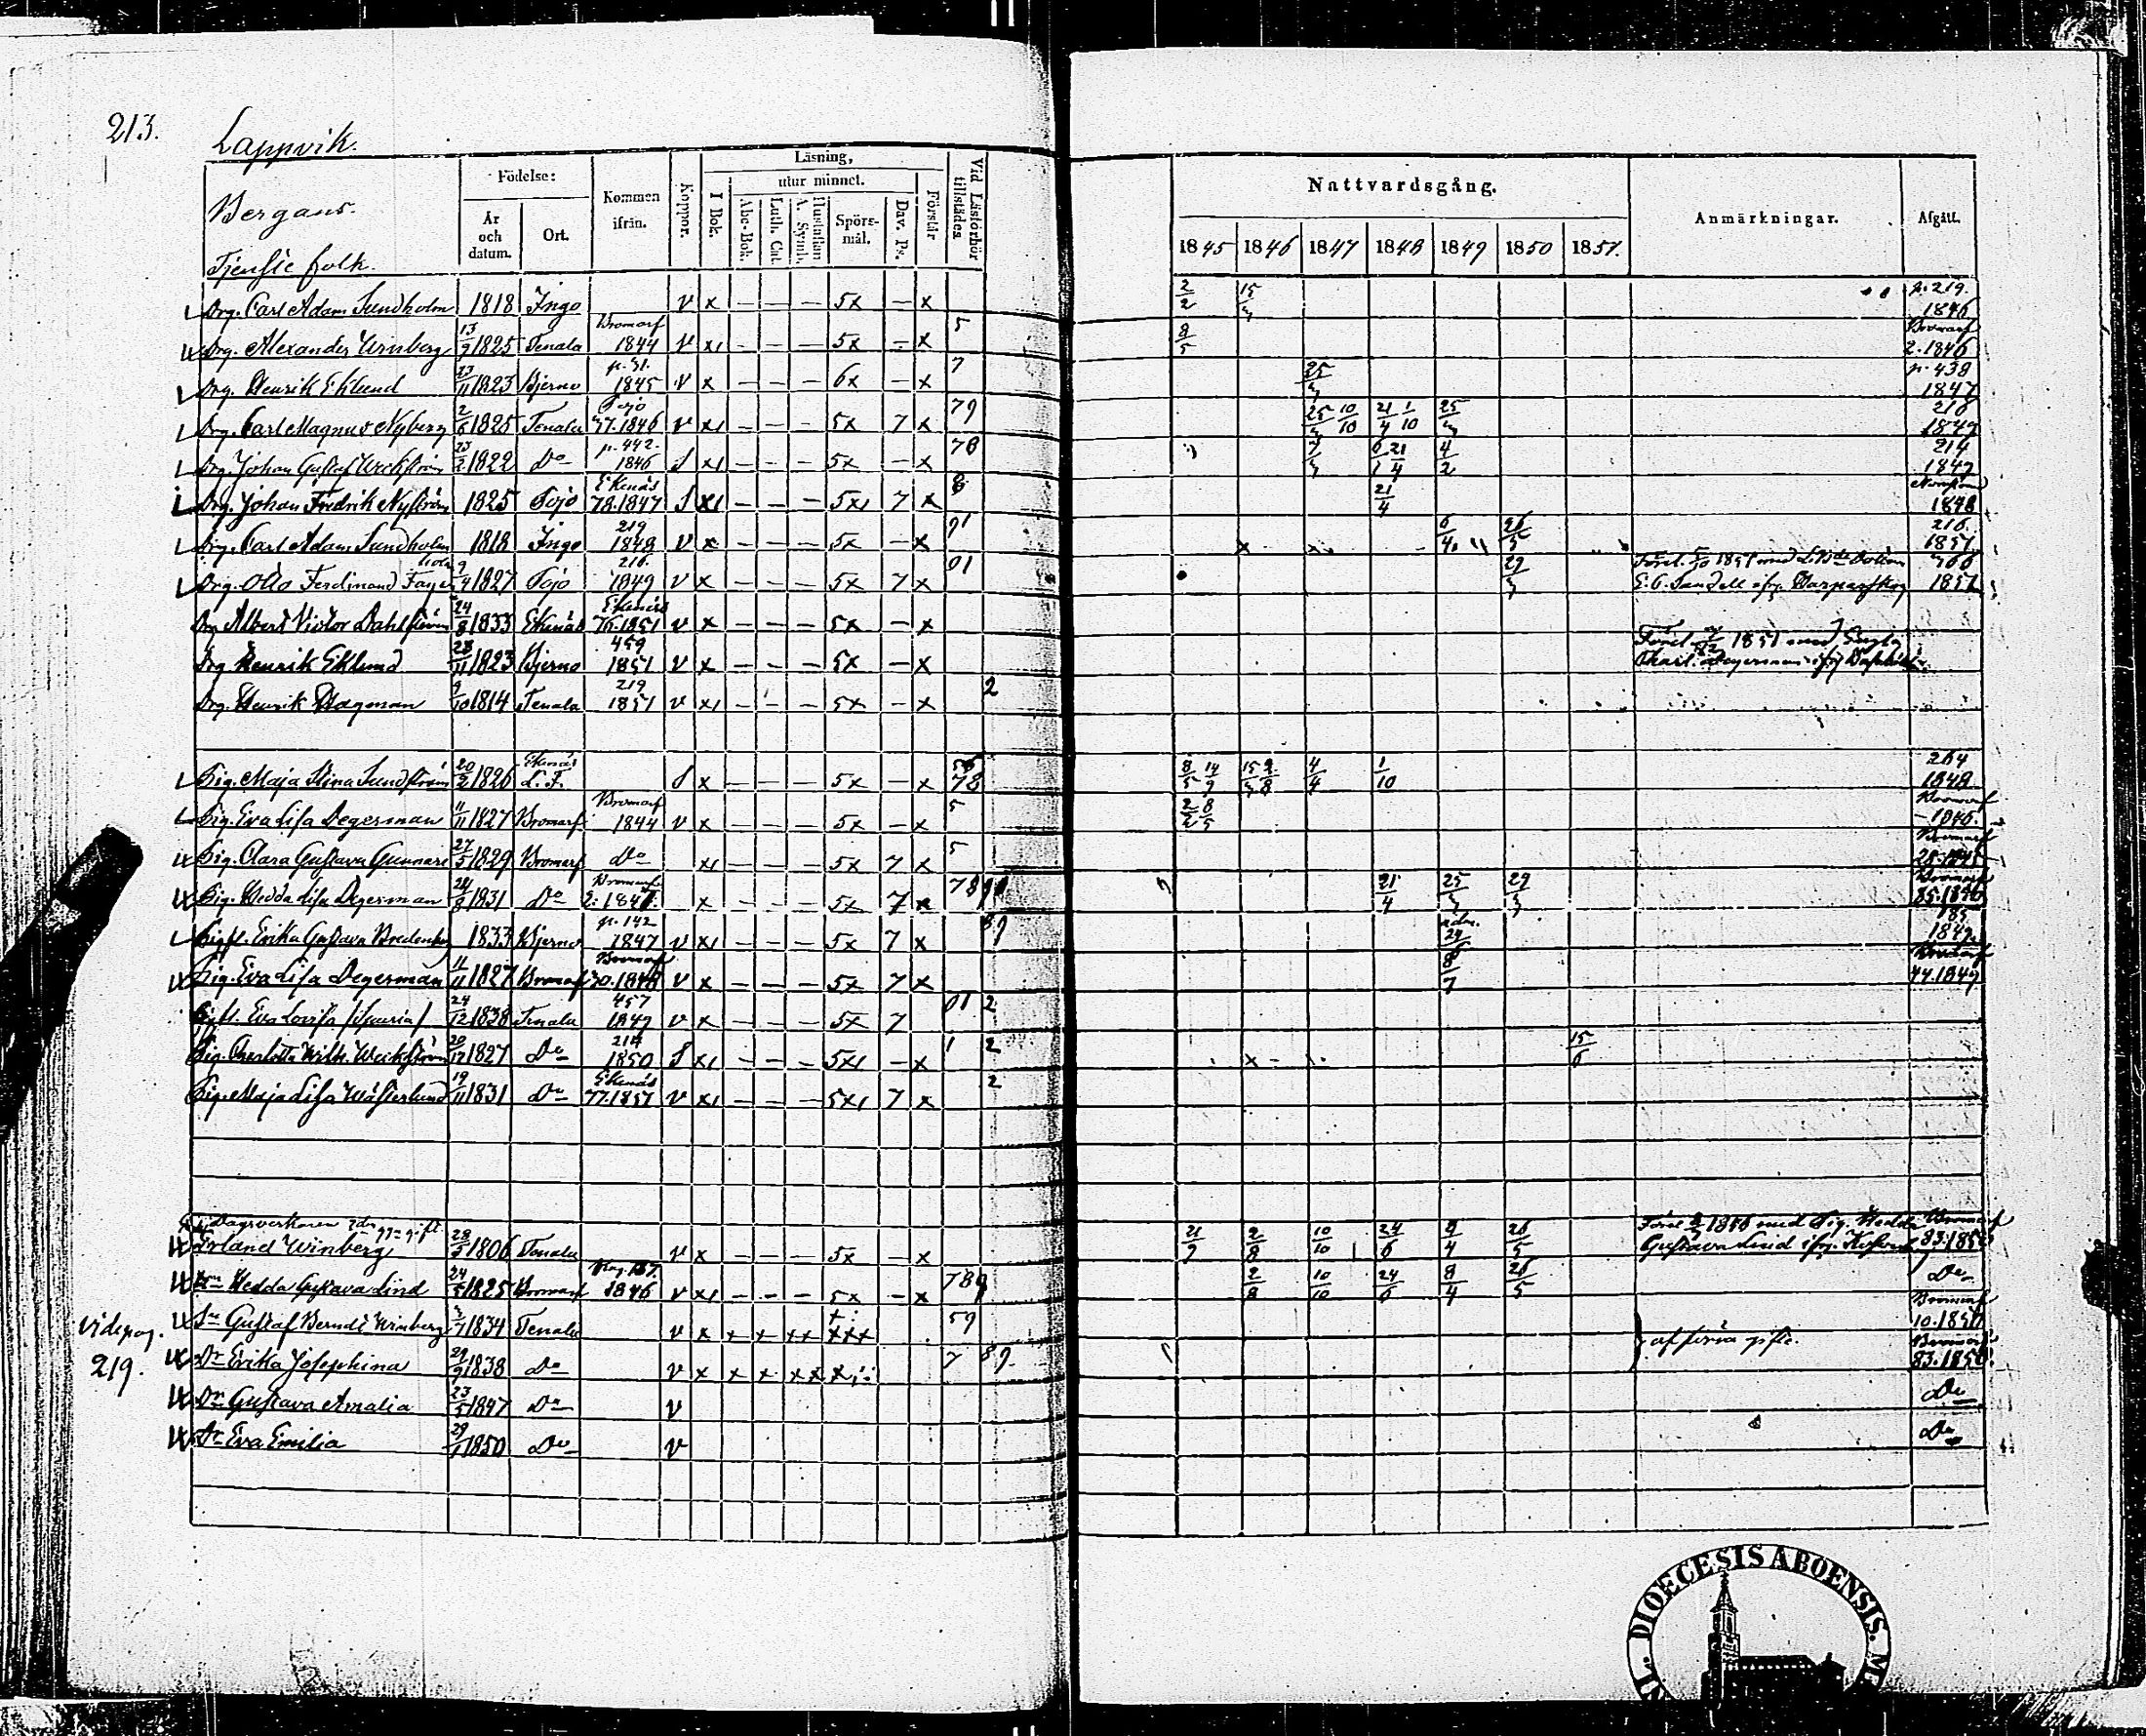 213.
Lappvik.
Bergans.
Tjenste folk.
Födelse:
År och datum.
Ort.
Kommen ifrån.
Koppor.
Läsning,
I Bok.
utur minnet.
Abc-Bok.
Luth. Cat.
Hustaflan A. Symb.
Spörsmål.
Dav. Ps.
Förstår
Vid Läsförhör tillstädes
Nattvardsgång.
1845 1846 1847 1848 1849 1850 1851.
Anmärkningar.
Afgått.
Drg. Carl Adam Sundholm 1818 Ingo v x — — — 5x — x 2/2 p. 219. 1846
Drg. Alexander Winberg 13/9 1825 Tenala Bromarf 1844 v x1 — — — 5x — x 5 8/5 Bromarf 2. 1846
Drg. Henrik Eklund 23/11 1823 Bjerno 1845 v x — — — 6x — x 7 p. 438 1847
Drg. Carl Magnus Nyberg 2/6 1825 Tenala Pojo 77.1846 v x1 — — — 5x 7 x 79 10/10 21/4 1/10 1849
Drg. Johan Gustaf Weckström 23/2 1822 Do p. 442. 1846 S x1 — — — 5x — x 78 21/4 4/2 214 1849
Drg. Johan Fredrik Nyström 1825 Pojo Ekenäs 78.1847 S x1 — — — 5x1 7 x 8 21/4 1848
Drg. Carl Adam Sundholm 1818 Ingo 219 1848 v x — — — 5x — x 91 6/4 26/5 216. 1851
Drg. Otto Ferdinand Fager 9/4 1827 Pojo 216. 1849 v x — — — 5x 7 x 01 1851 med 1851
Drg Albert Victor Dahlström 24/8 1833 Ekenäs Ekenäs 76.1851 v x — — — 5x — x
Drg Henrik Eklund 28/11 1823 Bjerno 459 1851 v x — — — 5x — x 1851 med
Drg. Henrik Hagman 9/10 1814 Tenala 219 1851 v x1 — — — 5x — x 2
Pig. Maja Stina Sundström 20/2 1826 Ekenäs L. F. S x — — — 5x — x 78 8/5 14/9 4/4 1/10 264 1848
Pig. Eva Lisa Degerman 11/11 1827 Bromarf Bromarf 1844 v x — — — 5x — x 5 8/5 Bromarf 1846.
Pig. Clara Gustava Gunnars 27/5 1829 Bromarf Do x1 — — — 5x 7 x 5 Bromarf
Pig. Hedda Lisa Degerman 24/8 1831 Do Bromarf x — — — 5x 7 x 21/4 Bromarf
Erika Gustava 1833 Bjerno p. 142 1847 v x1 — — — 5x 7 x 89 1849.
Pig. Eva Lisa Degerman 11/11 1827 Bromarf Bromarf 1848 v x — — — 5x 7 x 8/7 Bromarf 44.1849
Eva Lovisa 24/12 1838 Tenala 457 1849 v x — — — 5x 7 01 2
Pig. Charlotta Wilh. Weckström 20/12 1827 Do 214 1850 S x1 — — — 5x1 — x 1 2 15/6
Pig. Maja Lisa Wästerlund 19/11 1831 Do Ekenäs 77.1851 v x1 — — — 5x1 7 x 2
Dagsverkaren
Erland Winberg 28/5 1806 Tenala v x 5x — x 21/9 2/8 10/10 24/6 26/5 1846 med Pig. Hedda Bromarf
Gustava Lind 83.1850
Hedda Gustava Lind 24/5 1825 Bromarf 1846 v x1 — — — 5x — x 789 2/8 10/10 24/6 8/4 26/5 Do
Sn Gustaf Berndt Winberg 1834 Tenala v x x x xx xxx 59 Bromarf 10.1850
vide pag. 219.
Dr Erika Josephina 29/9 1838 Do v x x x x x 7 89 af förra gifte. Bromarf 83.1850.
Dr Gustava Amalia 23/5 1847 Do v Do
Dr Eva Emilia 29/1 1850 Do v Do
DIOECESIS ABOENSIS.